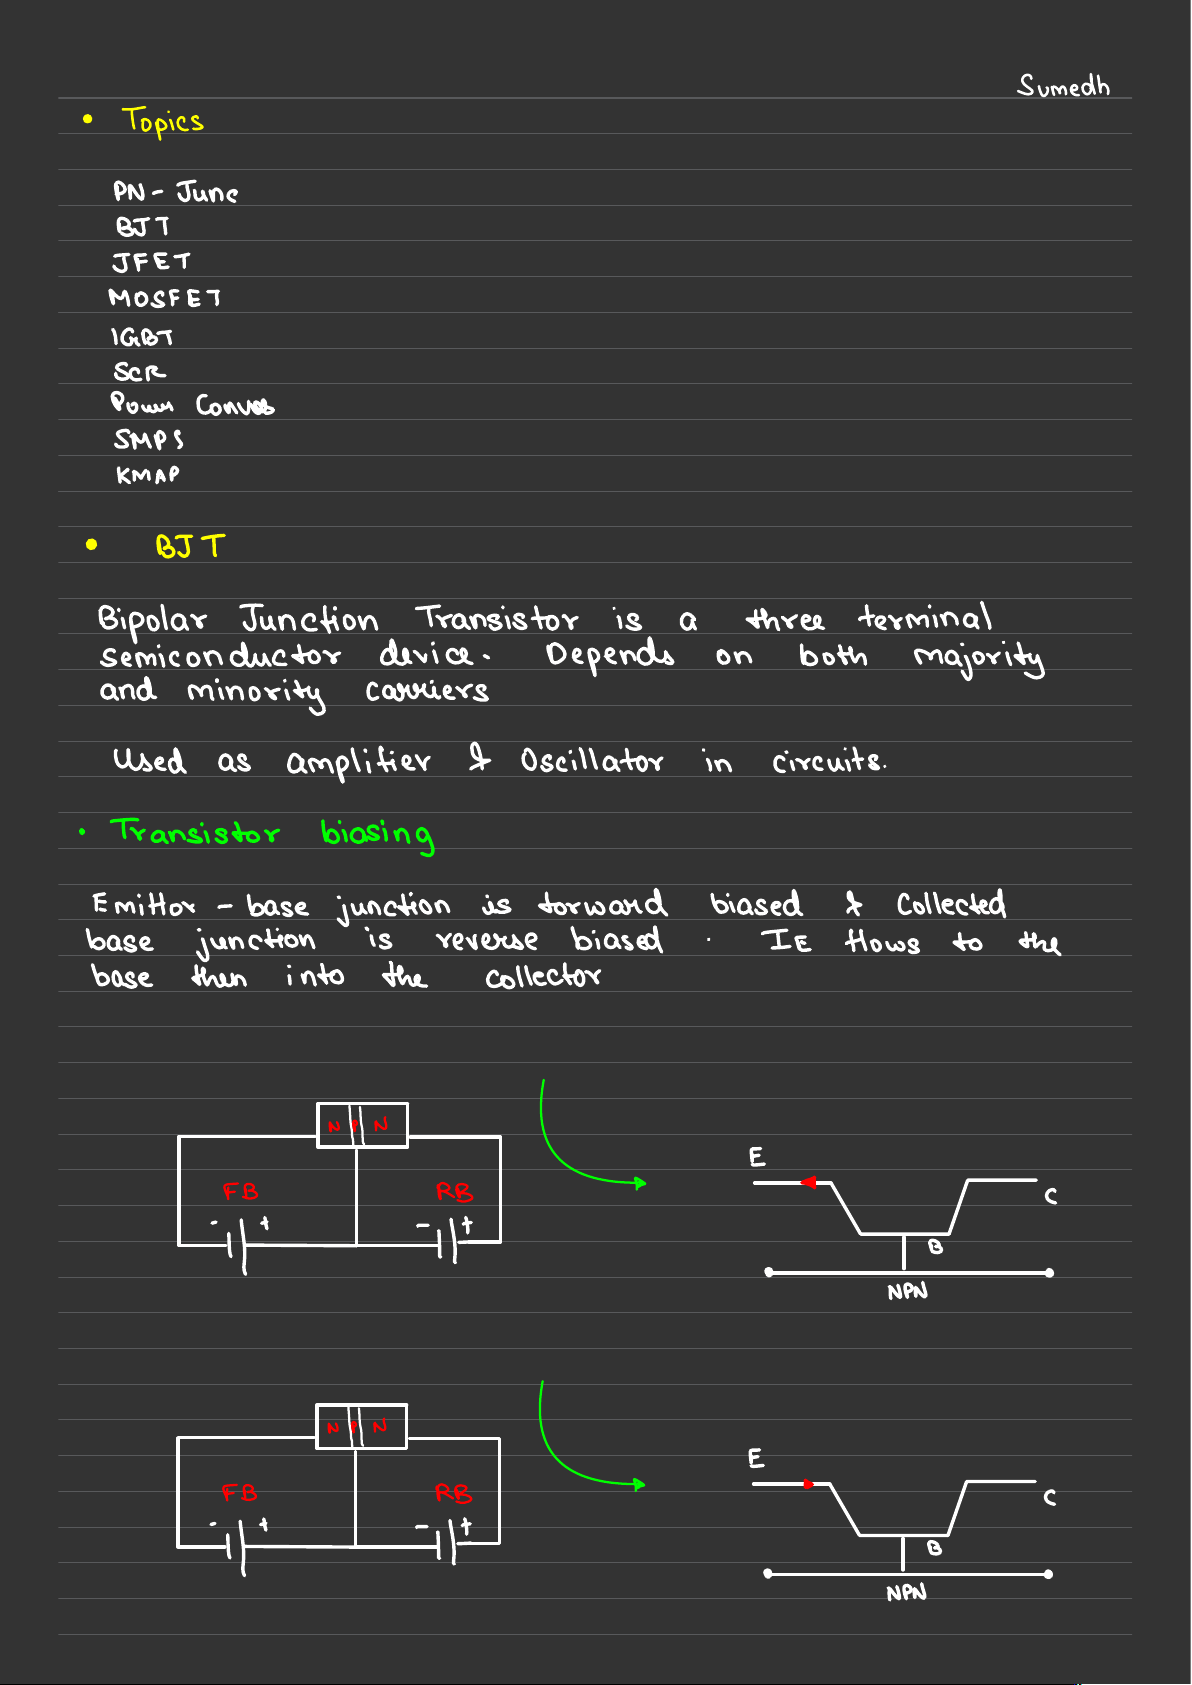 Sumedh
• Topics
PN - Junc
BJT
JFET
MOSFET
IGBT
SCR
Power
SMPS
KMAP
• BJT
Bipolar Junction Transistor is a three terminal
semiconductor device. Depends on both majority
and minority carriers
Used as amplifier & Oscillator in circuits.
• Transistor biasing
Emittor - base junction is forward biased & Collected
base junction is reverse biased. IE flows to the
base then into the collector
N P N
FB RB
- + - +
E
C
B
NPN
N P N
FB RB
- + - +
E
C
B
NPN